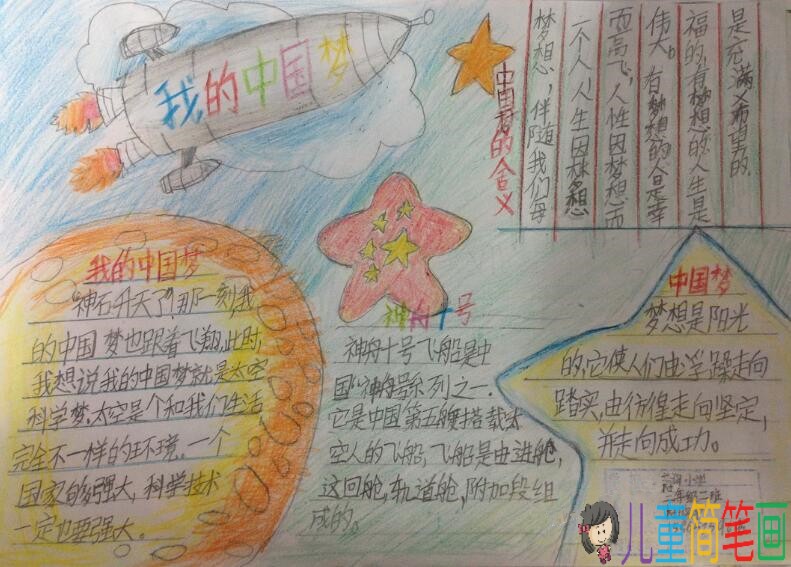 我的中国梦
中国梦的含义
梦想，伴随我们每
一个人，人生因梦想
而高飞，人性因梦想而
伟大。有梦想的人是幸
福的，有梦想的人生是
是充满义希望的
我的中国梦
"神石升天了"那一刻，我
的中国梦也跟着飞翔，此时，
我想说我的中国梦就是太空
科学梦。太空是个和我们生活
完全不一样的环境。一个
国家够强大，科学技术
一定也要强大。
神舟十号
神舟十号飞船是中
国"神舟号系列之一.
它是中国第五艘搭载太
空人的飞船，飞船是由进舱，
这回舱，轨道舱，附加段组
成的。
中国梦
梦想是阳光
的，它使人们由浮躁走向
踏实，由彷徨走向坚定，
并走向成功。
小学
二年级二班
儿童简笔画